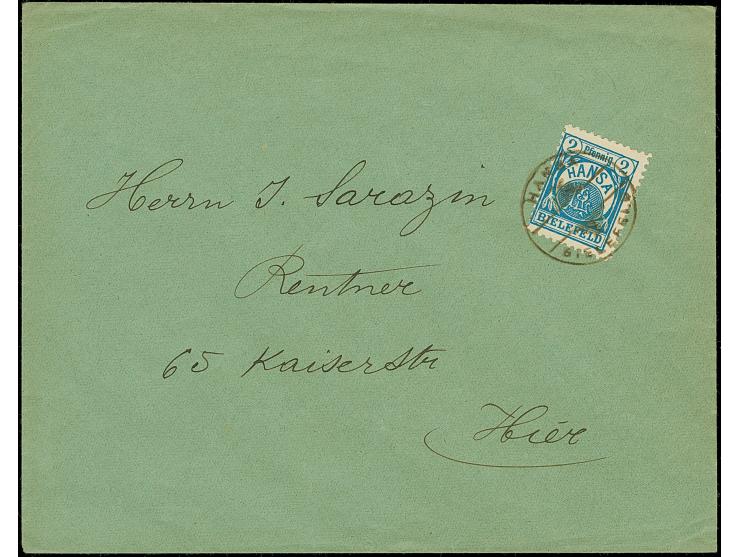 2 Pfennig 2
HANSA
BIELEFELD
HANSA
BIELEFELD
Herrn J. Sarazin
Rentner
65 Kaiserstr
Hier